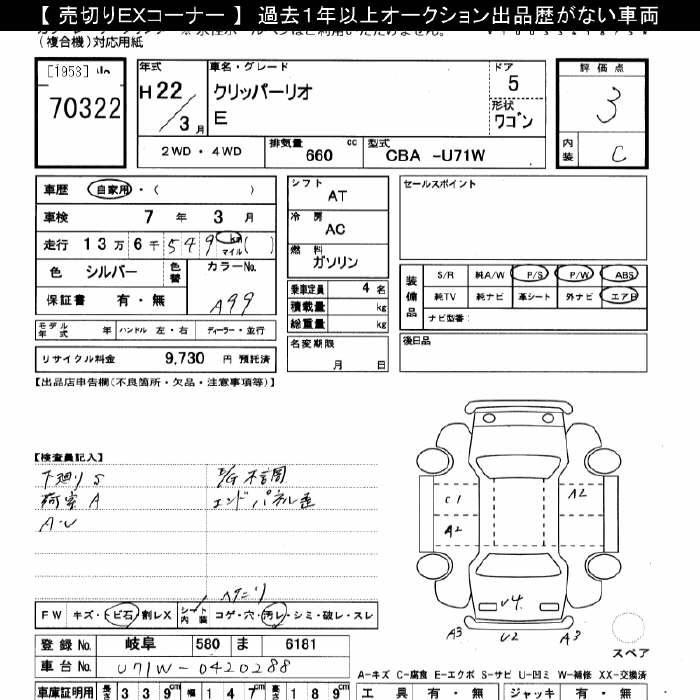 【 売切りEXコーナー 】 過去1年以上オークション出品歴がない車両
(複合機)対応用紙
[1953] 山
70322
年式
H 22 / 3 月
車名・グレード
クリッパーリオ
E
ドア
5
形状
ワゴン
評価点
3
内装
C
2WD ・ 4WD
排気量
660 cc
型式
CBA -U71W
車歴 自家用 ・( )
車検 7 年 3 月
走行 13万 6千 549 km マイル ( )
色 シルバー
色替
カラーNo.
A99
保証書 有 ・ 無
モデル年式 年 ハンドル 左 ・ 右 ディーラー・並行
リサイクル料金 9,730 円 預託済
シフト
AT
冷房
AC
燃料
ガソリン
乗車定員 4 名
積載量 kg
総重量 kg
名変期限
月 日
セールスポイント
装備品
S/R 純A/W P/S P/W ABS
純TV 純ナビ 革シート 外ナビ エアB
ナビ型番:
後日品
【出品店申告欄(不良箇所・欠品・注意事項等)】
【検査員記入】
下廻り S
荷室 A
A・U
E/G 不調
エンドパネル歪
C1
A2
A2
U4
A3
U2
A3
スペア
FW キズ・トビ石・割レX
シート内装
コゲ・穴・汚レ・シミ・破レ・スレ
登録 No. 岐阜 580 ま 6181
車台 No. U71W-0420288
A-キズ C-腐食 E-エクボ S-サビ U-凹ミ W-補修 XX-交換済
車庫証明用 長さ 339 cm 幅 147 cm 高さ 189 cm
工具 有 ・ 無 ジャッキ 有 ・ 無